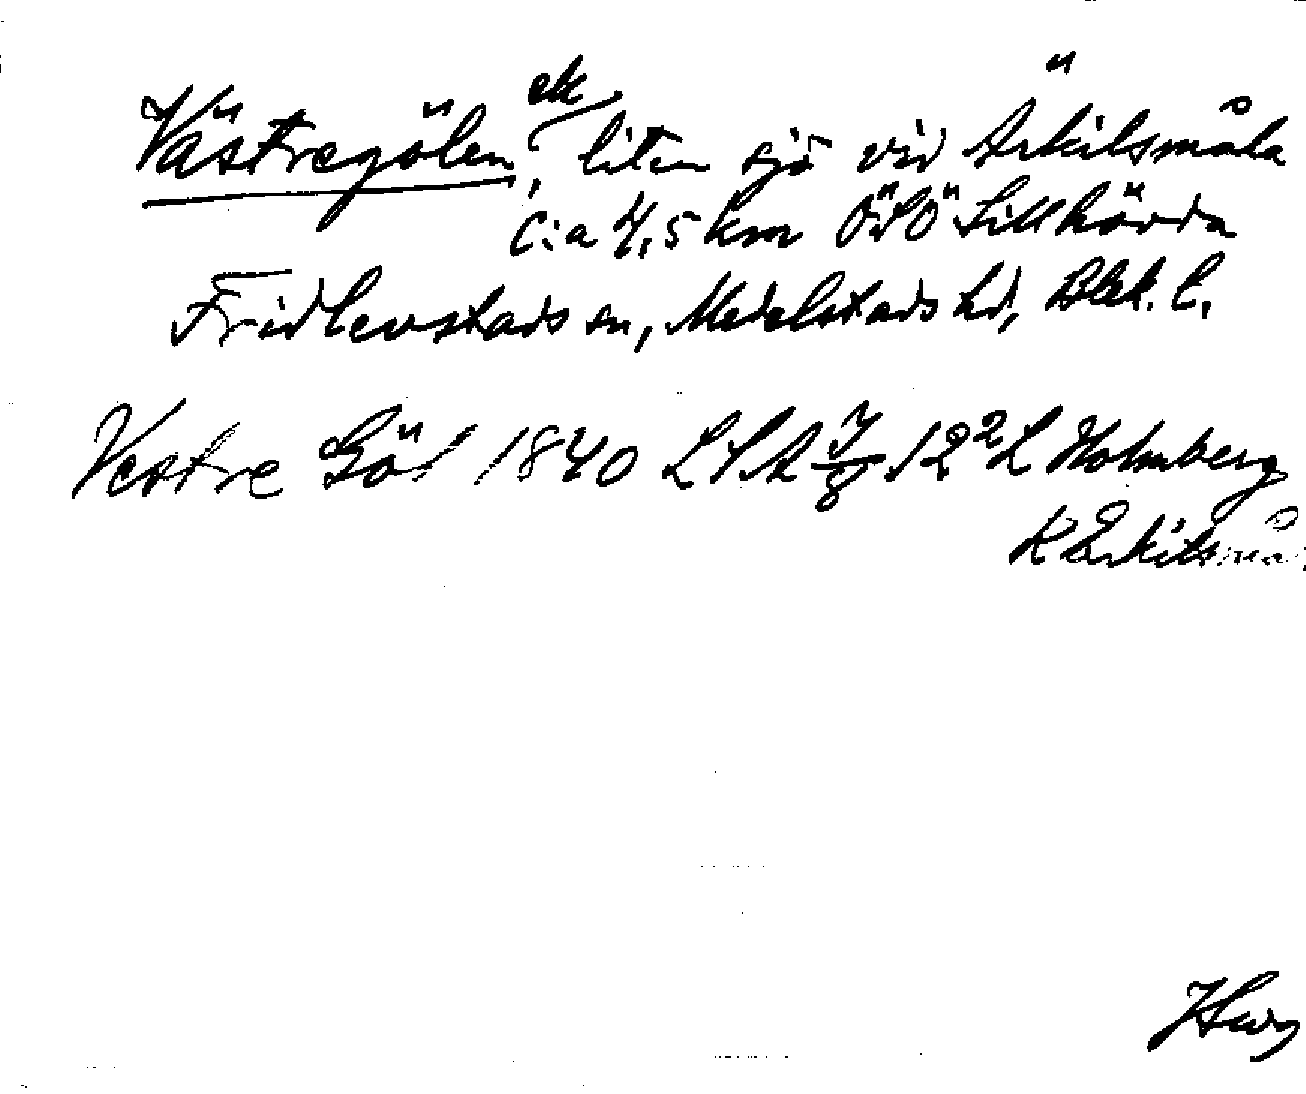 Västregölen, ek liten sjö vid Ärkilsmåla
c:a 4,5 km ÖSÖ Sillhövda
Fridlevstads sn, Medelstads hd, Blek. l.
Vestre Göl 1840 LSA J/8 12² L Holmberg
K Erkilsmå